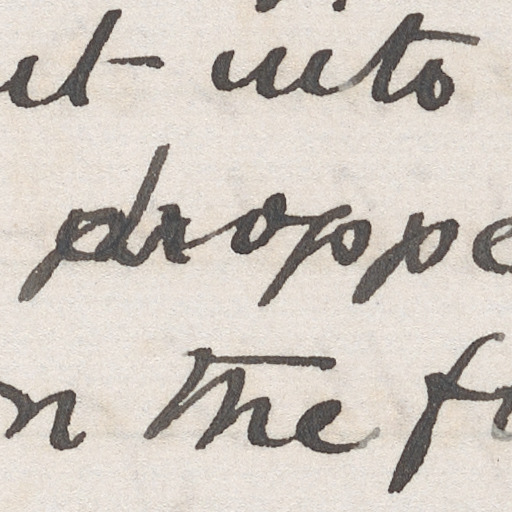 ut into
droppe
n the f